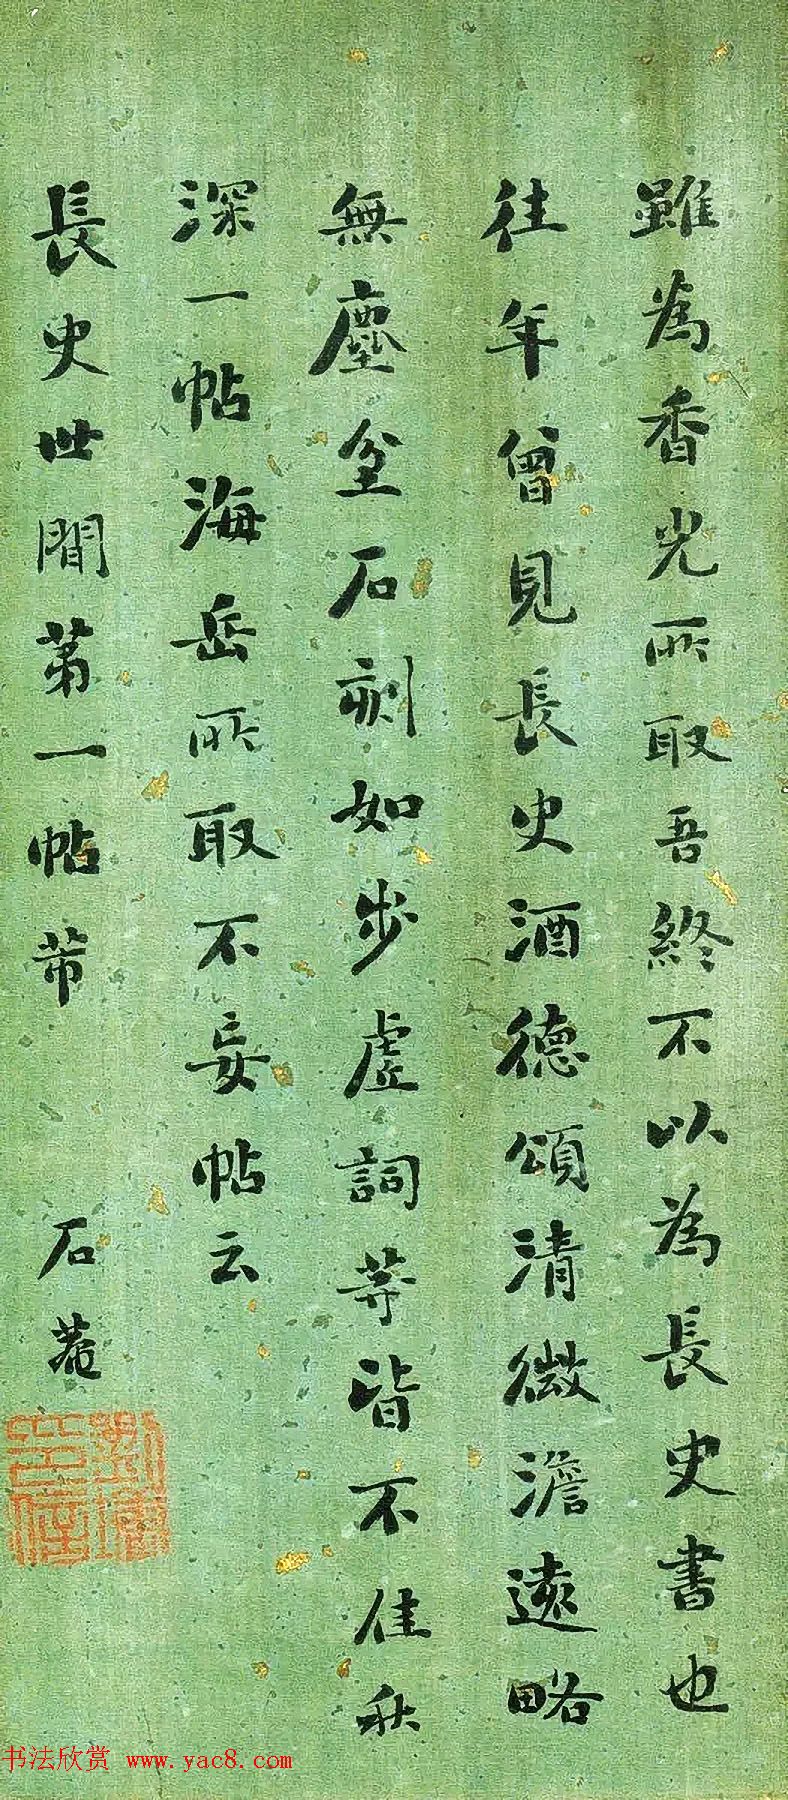 雖為香光所取吾終不以為長史書也
往年曾見長史酒德頌清微澹遠略
無塵坌石刻如步虛詞等皆不佳秋
深一帖海岳所取不妄帖云
長史世間第一帖芾
石菴
劉墉印信
书法欣赏 www.yac8.com